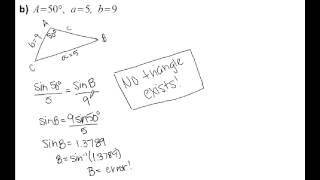 b) A=50°, a=5, b=9
A
c
b=9
50°
B
C
a=5
sin 50° / 5 = sin B / 9
sin B = 9 sin 50° / 5
sin B = 1.3789
B = sin⁻¹(1.3789)
B = error!
No triangle
exists!